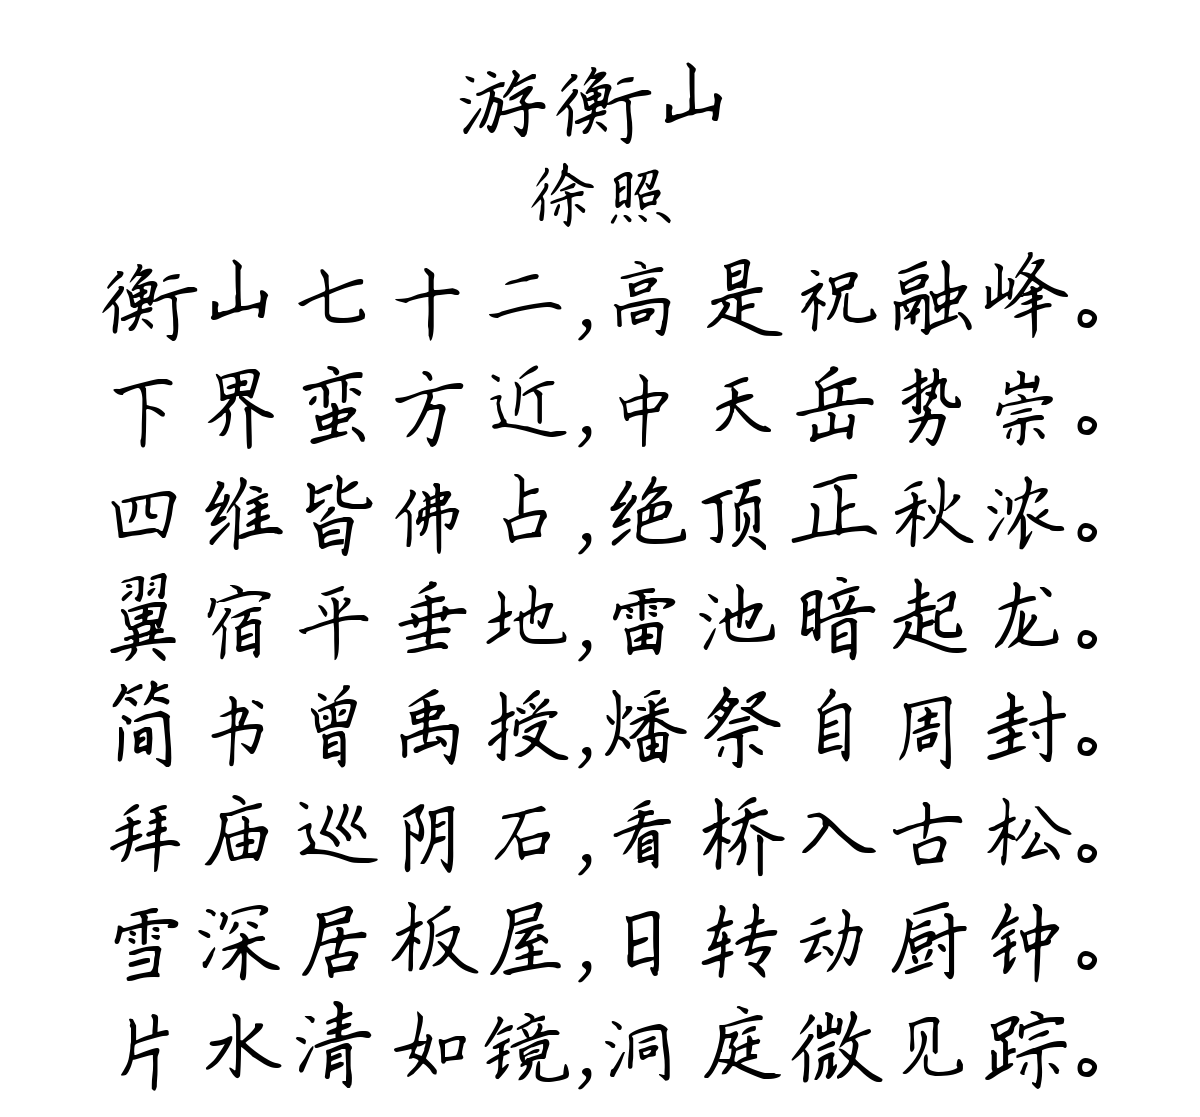 游衡山
徐照
衡山七十二,高是祝融峰。
下界蛮方近,中天岳势崇。
四维皆佛占,绝顶正秋浓。
翼宿平垂地,雷池暗起龙。
简书曾禹授,燔祭自周封。
拜庙巡阴石,看桥入古松。
雪深居板屋,日转动厨钟。
片水清如镜,洞庭微见踪。